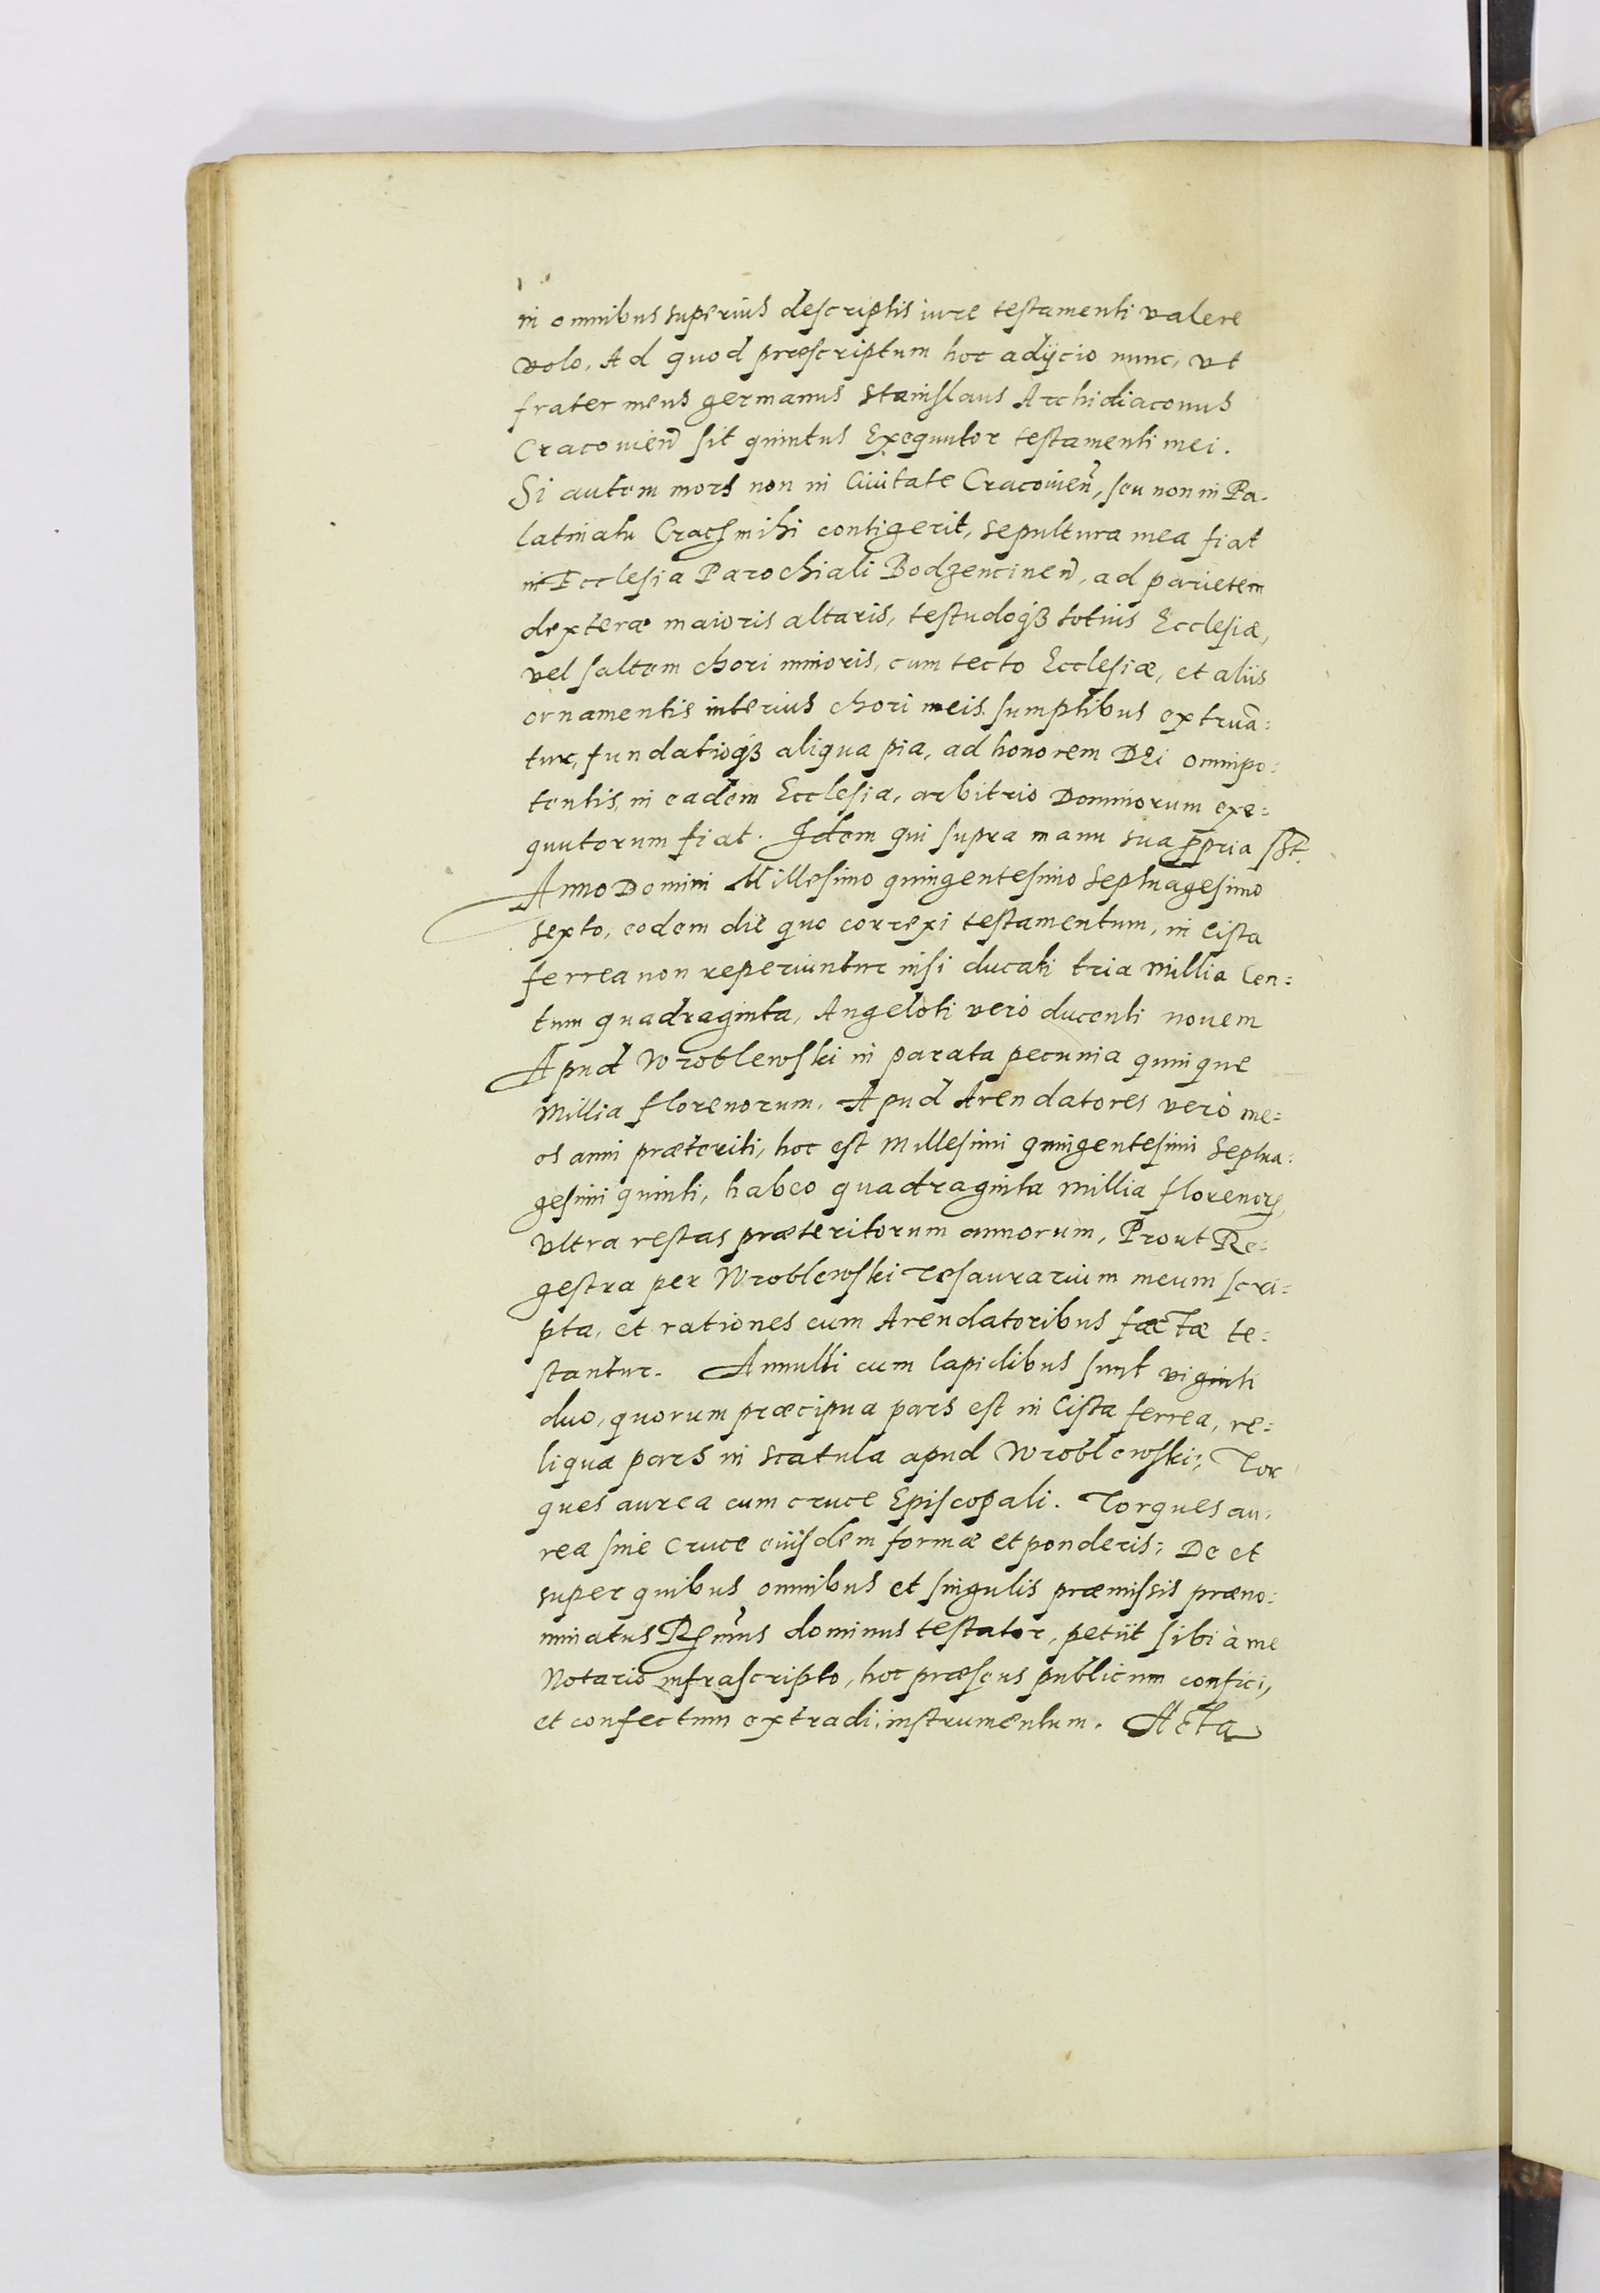 in omnibus superius descriptis iure testamenti valere
volo, Ad quod præscriptum hoc adijcio nunc, ut
frater meus germanus Stanislaus Archidiaconus
Cracouieñ sit quintus Exequutor testamenti mei.
Si autem mors non in Ciuitate Cracouieñ, seu non in Pa-
latinatu Cracꝭ mihi contigerit, sepultura mea fiat
in Ecclesia Parochiali Bodzencineñ, ad parietem
dexteræ maioris altaris, testudoqꝫ totius Ecclesiæ,
vel saltem chori minoris, cum tecto Ecclesiæ, et aliis
ornamentis interius chori meis sumptibus extruã=
tur, fundatioqꝫ aliqua pia, ad honorem Dei omnipo=
tentis, in eadem Ecclesia, arbitrio Dominorum exe=
quutorum fiat. Idem qui supra manu sua ꝓpria sßt.
Anno Domini Millesimo quingentesimo Septuagesimo
sexto, eodem die quo correxi testamentum, in Cista
ferrea non reperiuntur nisi ducati tria Millia Cen=
tum quadraginta, Angeloti vero ducenti nouem
Apud Wroblewski in parata pecunia quinque
Millia florenorum. Apud Arendatores verò me=
os anni præteriti, hoc est Millesimi quingentesimi Septua=
gesimi quinti, habeo quadraginta Millia florenorꝭ,
Vltra restas præteritorum annorum, Prout Re=
gestra per Wroblewski Tesaurarium meum scri=
pta, et rationes cum Arendatoribus factæ te=
stantur. Annulli cum lapidibus sunt viginti
duo, quorum præcipua pars est in Cista ferrea, re=
liqua pars in scatula apud Wroblewski; Tor
ques aurea cum cruce Episcopali. Torques au=
rea sine Cruce eiusdem formæ et ponderis; De et
super quibus omnibus et singulis præmissis præno=
minatus Rm̃us dominus testator, petiit sibi à me
Notario infrascripto, hoc præsens publicum confici,
et confectum extradi instrumentum. Acta